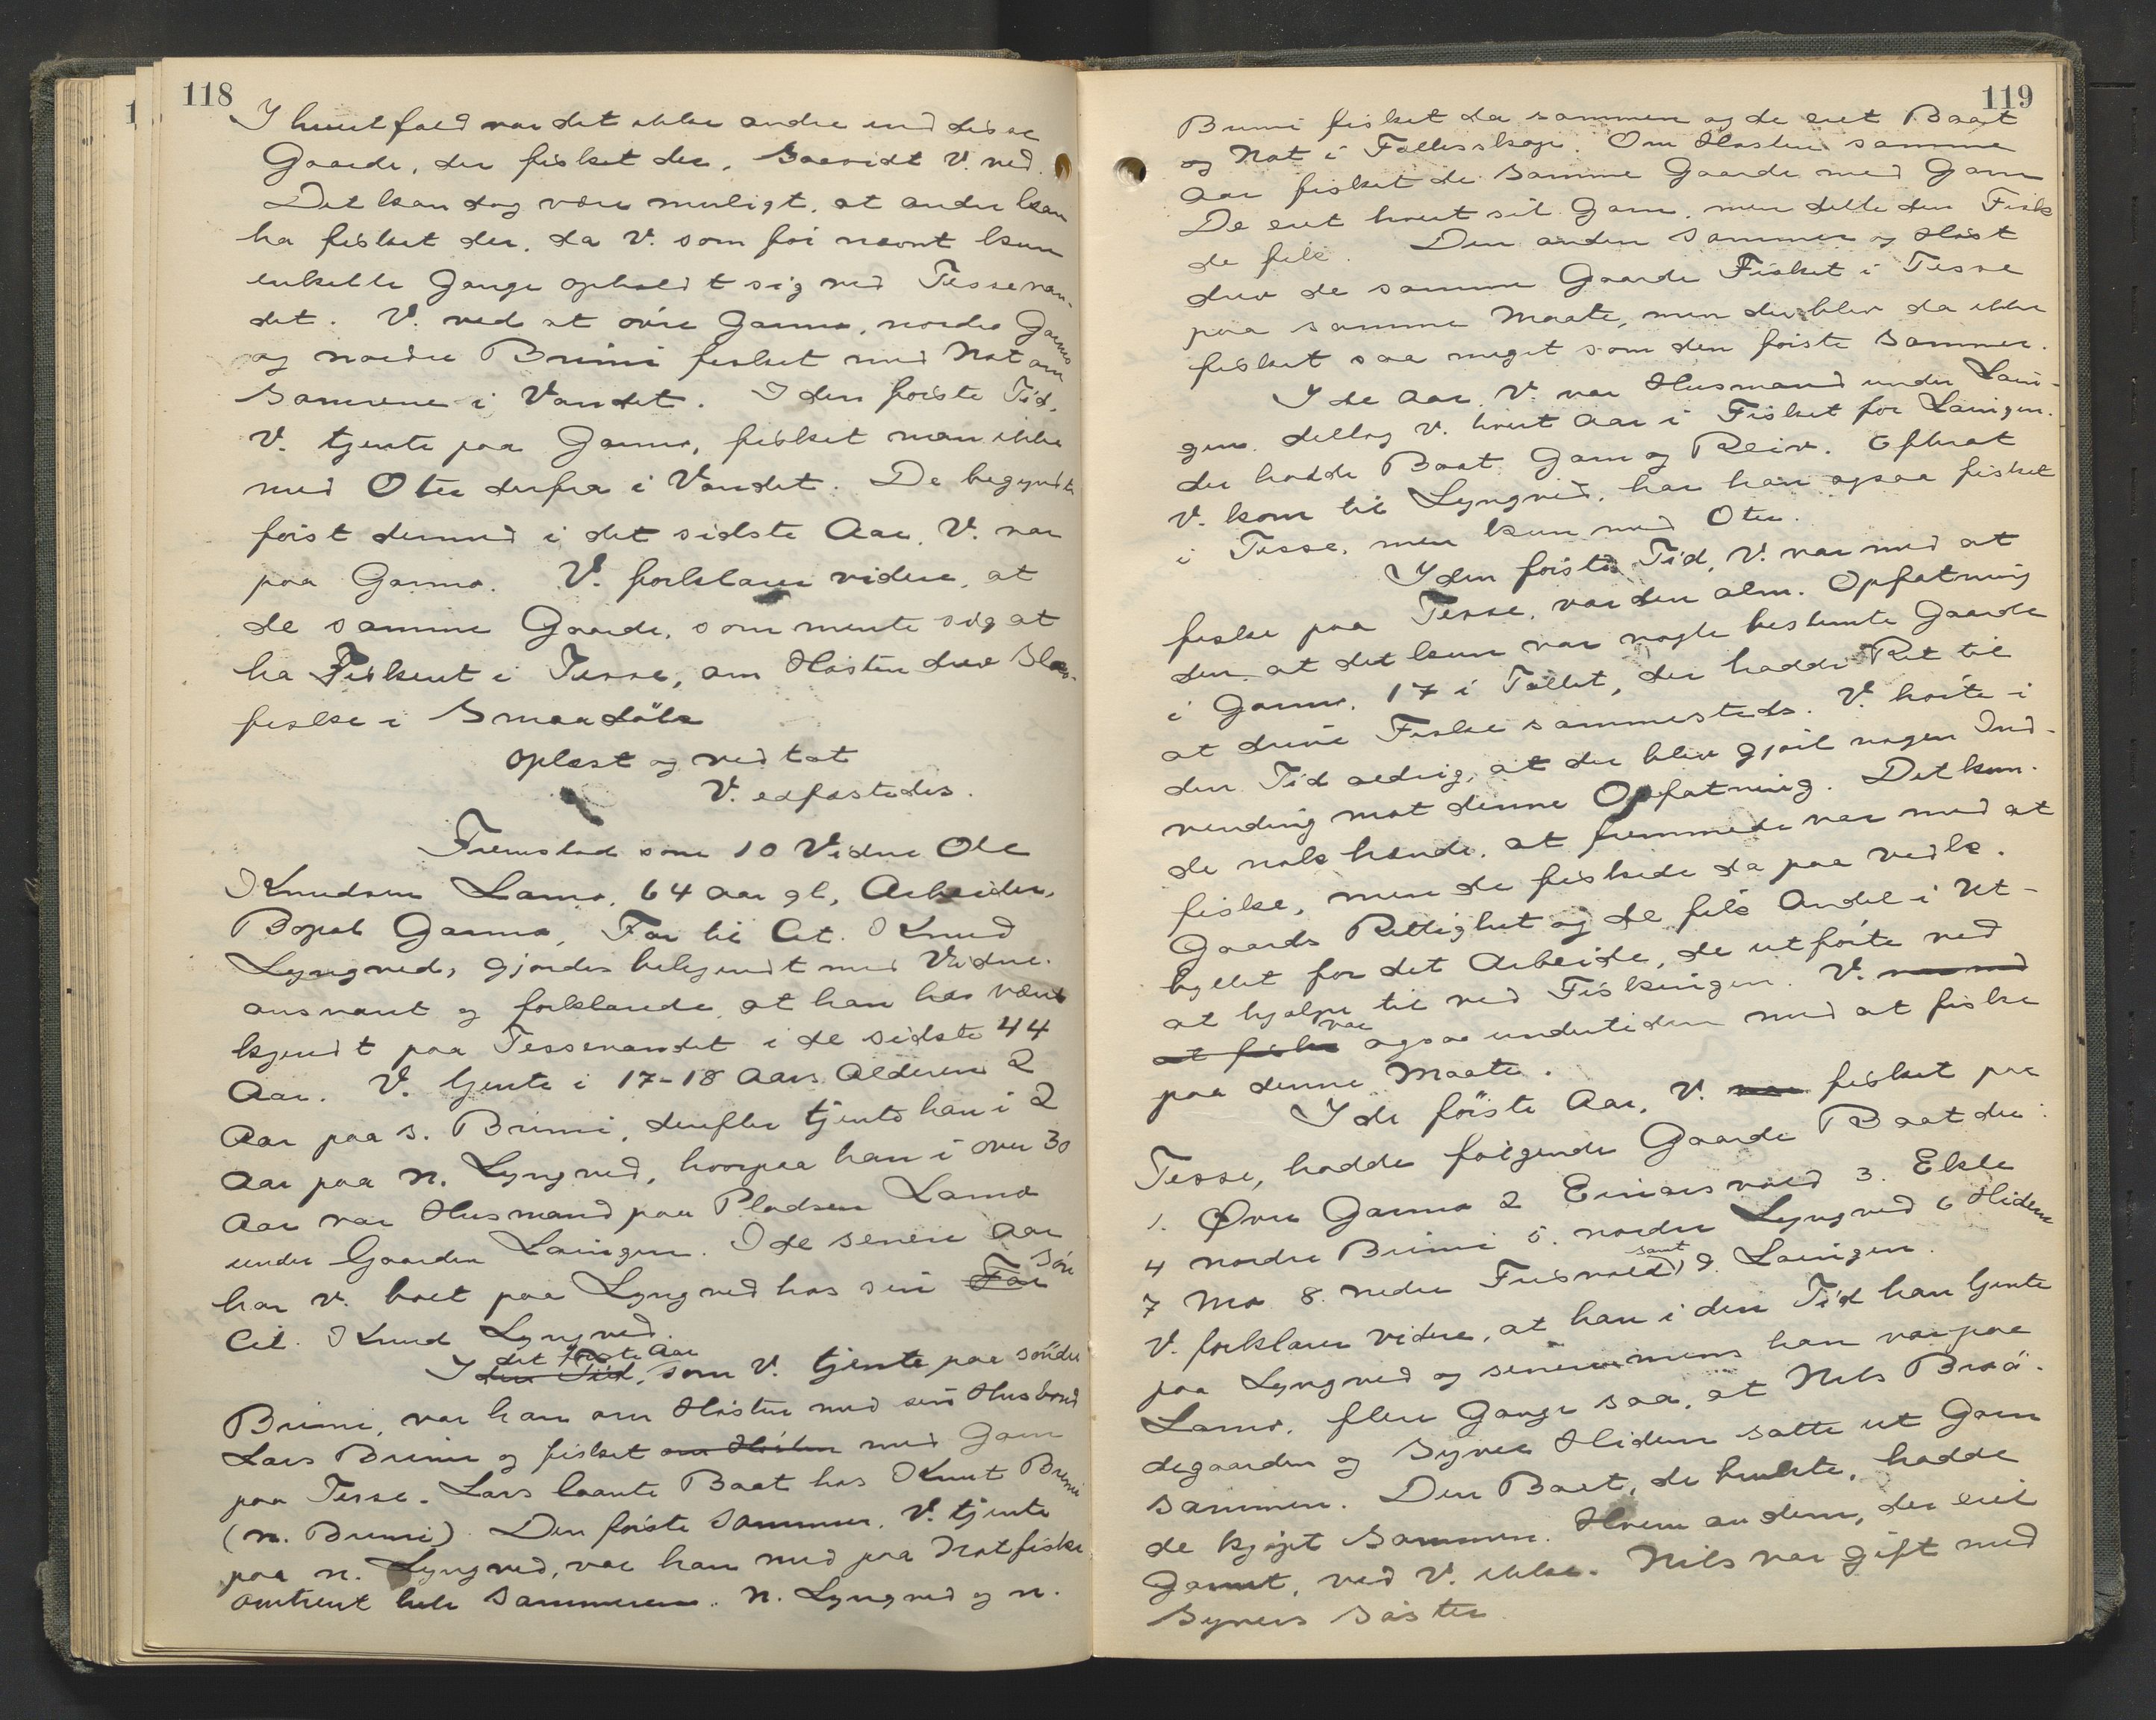 118
I hvert fald var det ikke andre end disse
Gaarde, der fisket der, saavidt V. ved.
Det kan dog være muligt, at andre kan
ha fisket der, da V. som før nævnt kun
enkelte Gange opholdt sig ved Tessevan-
det. V. ved at øvre Garmo, nordre Garmo
og nordre Brimi fisket med Not om
Somrene i Vandet. I den første Tid,
V. tjente paa Garmo, fisket man ikke
med Oter derfra i Vandet. De begyndte
først dermed i det sidste Aar, V. var
paa Garmo. V. forklarer videre, at
de samme Gaarde, som mente sig at
ha Fiskeret i Tesse, om Høsten drev
fiske i Smaadøla
Oplæst og vedtat
V. exfastedes.
Fremstod som 10 Vidne Ole
Knudsen Lamo, 64 aar gl, Arbeider,
Bopæl Garmo, Far til Cit. Knud
Lyngved, gjordes bekjendt med Vidne-
ansvaret og forklarede, at han har været
kjendt paa Tessevandet i de sidste 44
Aar. V. tjente i 17-18 Aars Alderen 2
Aar paa s. Brimi, derefter tjente han i 2
Aar paa n. Lyngved, hvorpaa han i over 30
Aar var Husmand paa Pladsen Lamo
under Gaarden Lauigen. I de senere Aar
har V. boet paa Lyngved hos sin Far Søn
Cit. Knud Lyngved.
I den Tid det første Aar, som V. tjente paa søndre
Brimi, var han om Høsten med sin Husbond
Lars Brimi og fisket om Høsten med Garn
paa Tesse. Lars laante Baat hos Knut Brimi
(n. Brimi). Den første Sommer, V. tjente
paa n. Lyngved, var han med paa Notfiske
omtrent hele Sommeren. N. Lyngved og n.
119
Brimi fisket da sammen og de eiet Baat
og Not i Fællesskap. Om Høsten samme
Aar fisket de samme Gaarde med Garn
De eiet hvert sit Garn, men delte den Fisk
de fik. Den anden Sommer og Høst
drev de samme Gaarde Fisket i Tesse
paa samme Maate, men der blev da ikke
fisket saa meget som den første Sommer.
I de Aar, V. var Husmand under Laui-
gen, deltog V. hvert Aar i Fisket for Lauigen.
der hadde Baat, Garn og Reiv. Efterat
V. kom til Lyngved, har han ogsaa fisket
i Tesse, men kun med Oter.
I den første Tid, V. var med at
fiske paa Tesse, var den alm. Opfatning
den, at det kun var nogle bestemte Gaarde
i Garmo, 17 i Tallet, der hadde Ret til
at drive Fiske sammesteds. V. hørte i
den Tid aldrig, at der blev gjort nogen Ind-
vending mot denne Opfatning. Det kun-
de nok hænde, at fremmede var med at
fiske, men de fiskede da paa vedk.
Gaards Rettighet og de fik Andel i Ut-
byttet for det Arbeide, de utførte ved
at hjælpe til ved Fiskingen. V. var med
at fiske var ogsaa undertiden med at fiske
paa denne Maate.
I de første Aar, V. var fisket paa
Tesse, hadde følgende Gaarde Baat der:
1. Øvre Garmo 2 Einarsvold 3. Ekle
4 nordre Brimi 5. nordre Lyngved 6 Hidem
7 Mo 8. nedre Frisvold samt 9. Lauigen.
V. forklarer videre, at han i den Tid han tjente
paa Lyngved og senere mens han var paa
Lamo, flere Gange saa, at Nils Brøø-
degaarden og Syver Hidem satte ut Garn
sammen. Den Baat, de brukte, hadde
de kjøpt sammen. Hvem av dem, der eiet
Garnet, ved V. ikke. Nils var gift med
Syvers Søster.